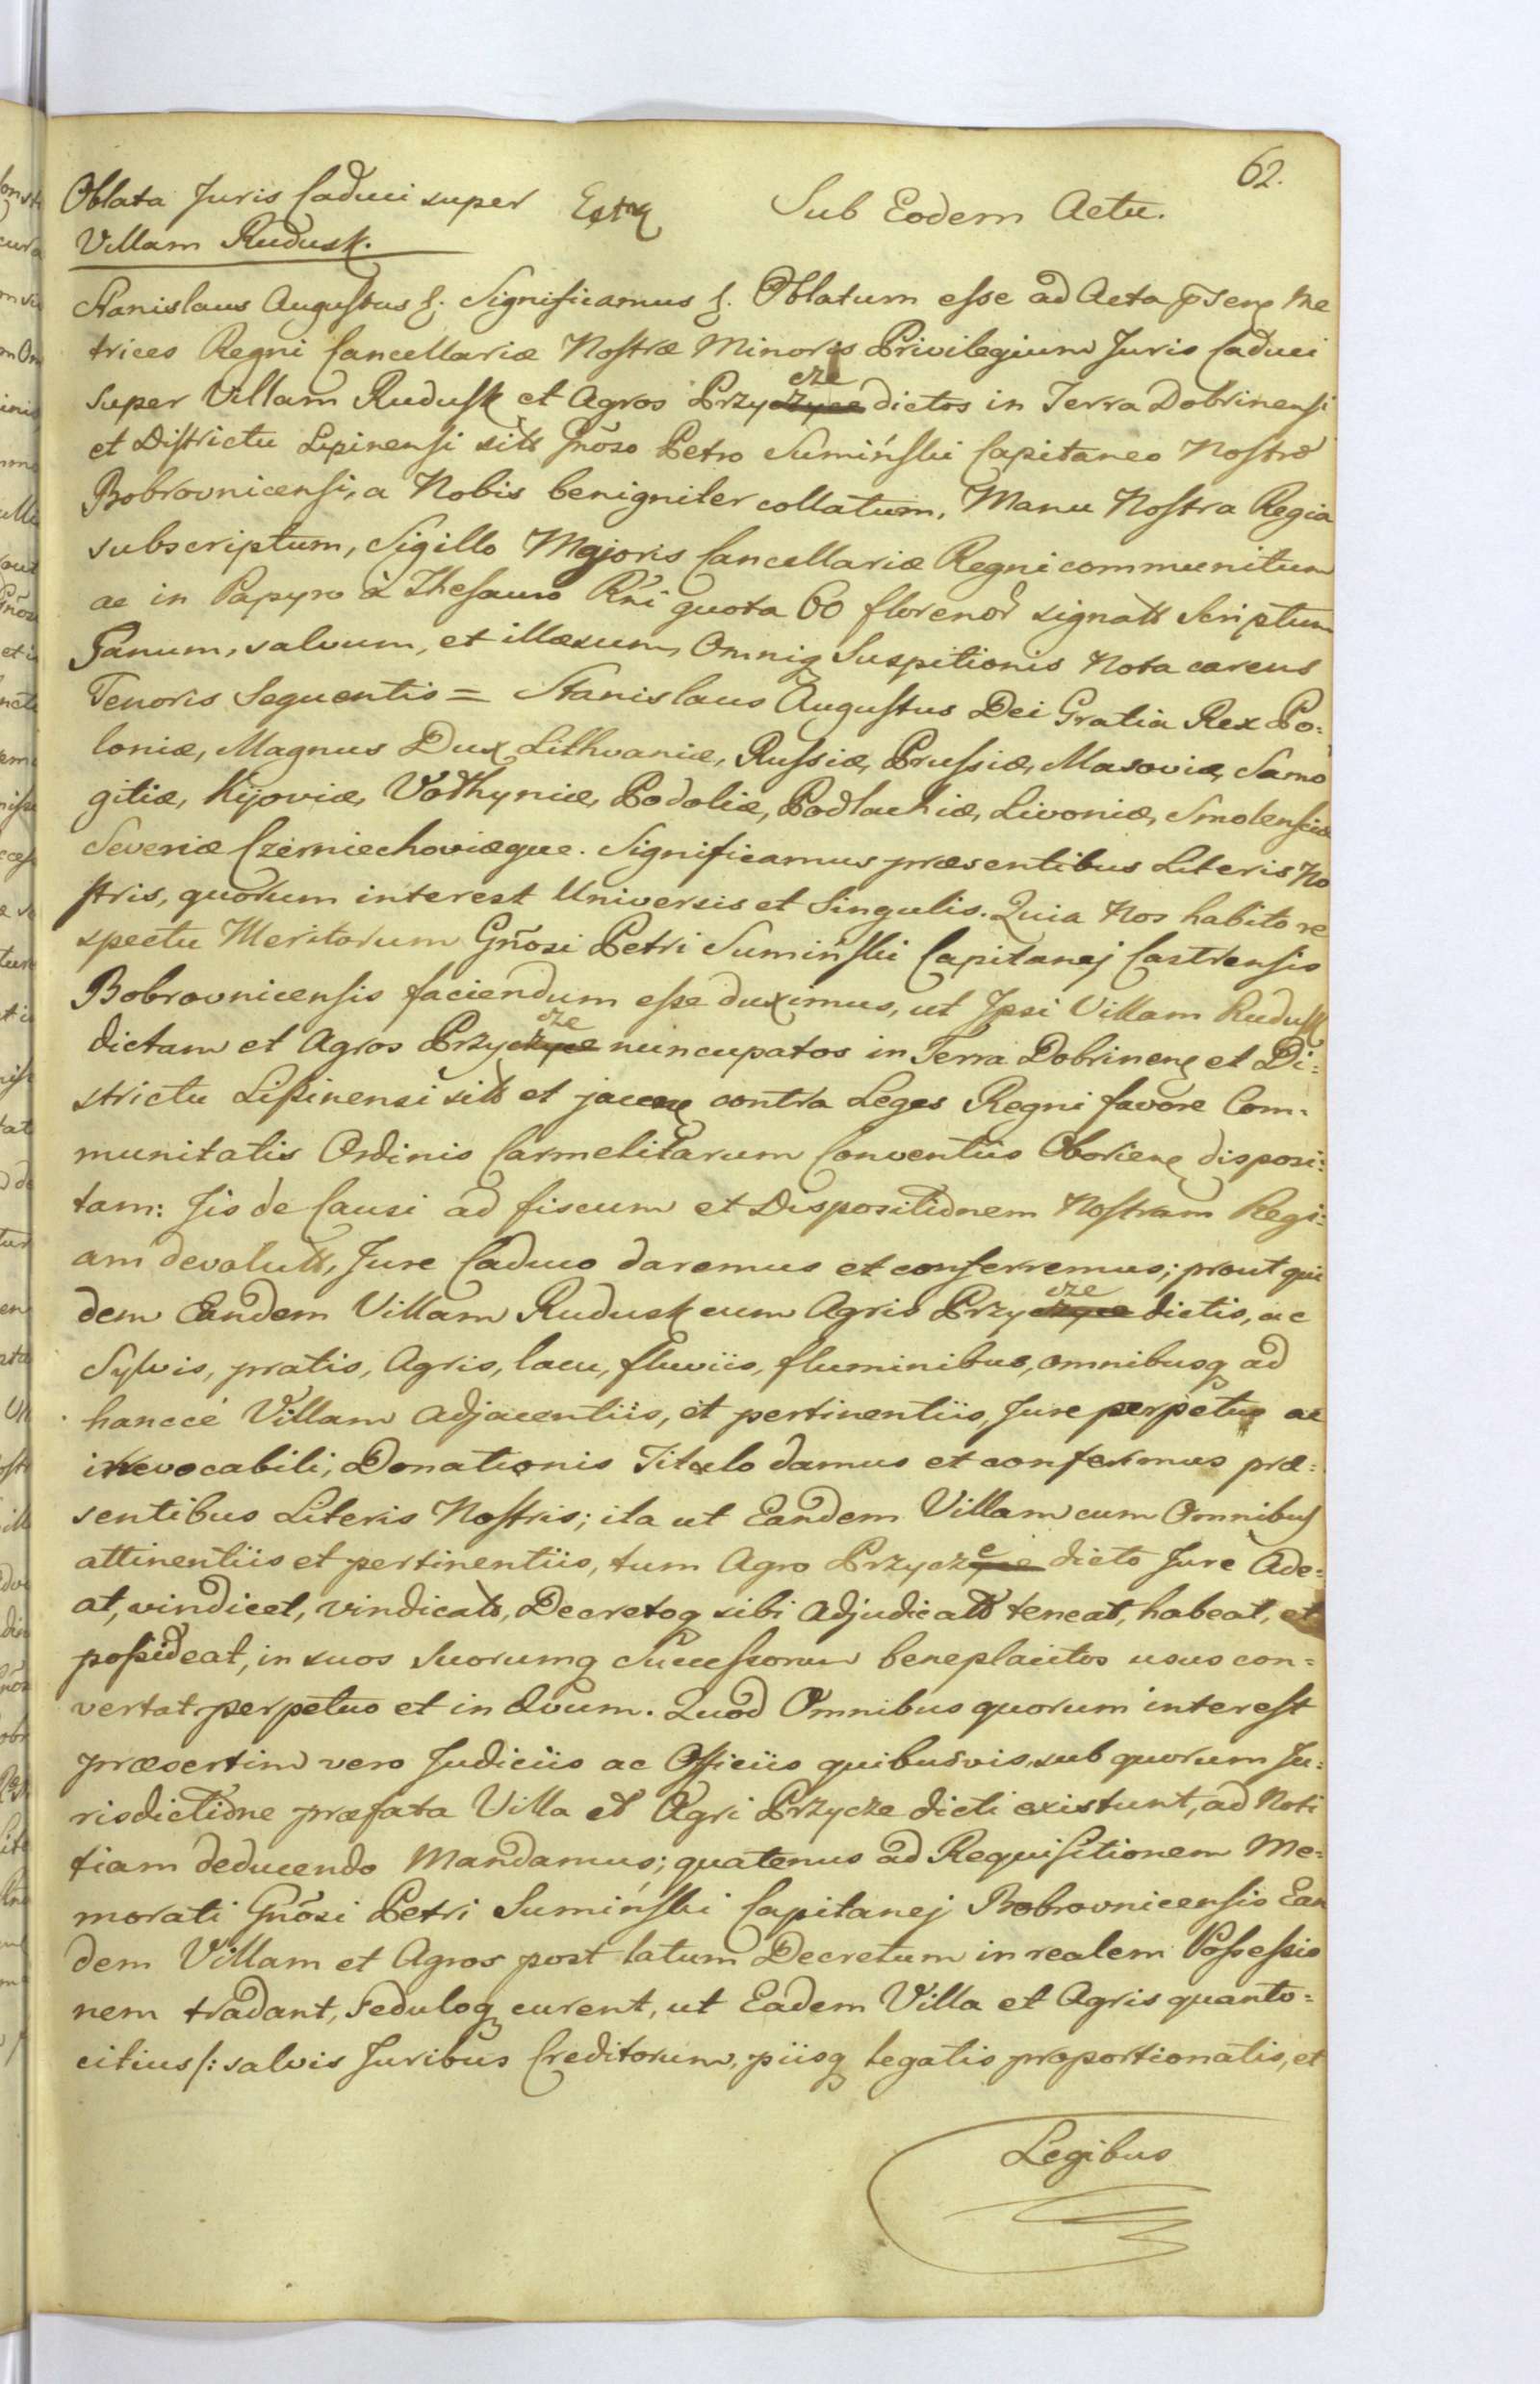 62.
Oblata Juris Caduci super Extq Sub Eodem Actu.
Villam Rudusk.
Stanislaus Augustus &. Significamus &. Oblatum esse ad Acta p̄senę Me
trices Regni Cancellariæ Nostræ Minoris Privilegium Juris Caduci
super Villam Rudusk et Agros Przycze dictos in Terra Dobrinensi
et Districtu Lipinensi sitt Gñoso Petro Sumiński Capitaneo Nostro
Bobrovnicensi, a Nobis benigniter collatum, Manu Nostra Regia
subscriptum, Sigillo Majoris Cancellariæ Regni communitum
ac in Papyro à Thesauro Rñi quota 60 florenor signatt Scriptum
Sanum, salvum, et illæsum, Omniq Suspitionis Nota carens
Tenoris Sequentis = Stanislaus Augustus Dei Gratia Rex Po:
loniæ, Magnus Dux Lithvaniæ, Russiæ, Prussiæ, Masoviæ, Samo
gitiæ, Kijoviæ, Volhyniæ, Podoliæ, Podlachiæ, Livoniæ, Smolensciæ
Severiæ Czerniechoviæque. Significamus præsentibus Literis No
stris, quorum interest Universis et Singulis. Quia Nos habito re
spectu Meritorum Gñosi Petri Sumiński Capitanej Castrensis
Bobrovnicensis faciendum esse duximus, ut Ipsi Villam Rudusk
dictam et Agros Przycze nuncupatos in Terra Dobrinenę et Di:
strictu Lipinensi sitt et jacenę contra Leges Regni favore Com:
munitatis Ordinis Carmelitarum Conventus Oborienę disposi:
tam: Iis de Causi ad fiscum et Dispositionem Nostram Regi:
am devolutt, Jure Caduco daremus et conferremus; prout qui
dem Eandem Villam Rudusk cum Agris Przycze dictis, ac
Sylvis, pratis, Agris, lacu, fluviis, fluminibus, omnibusq ad
hancce Villam adjacentiis, et pertinentiis, Jure perpetuo ac
irrevocabili, Donationis Titulo damus et conferimus præ:
sentibus Literis Nostris; ita ut Eandem Villam cum Omnibus
attinentiis et pertinentiis, tum Agro Przycze dicto Jure Ade:
at, vindicet, vindicatt, Decretoq sibi Adjudicatt teneat, habeat, et
possideat, in suos Suorumq Successorum beneplacitos usus con:
vertat perpetuo et in ævum. Quod Omnibus quorum interest
præsertim vero Judiciis ac Officiis quibusvis, sub quorum Ju:
risdictione præfata Villa et Agri Przycze dicti existunt, ad Noti
tiam deducendo Mandamus; quatenus ad Requisitionem Me:
morati Gñosi Petri Sumiński Capitanej Bobrovnicensis Ean
dem Villam et Agros post latum Decretum in realem Possessio
nem tradant, Seduloq curent, ut Eadem Villa et Agris quanto:
citius /: salvis Juribus Creditorum, piisq legatis proportionatis, et
Legibus